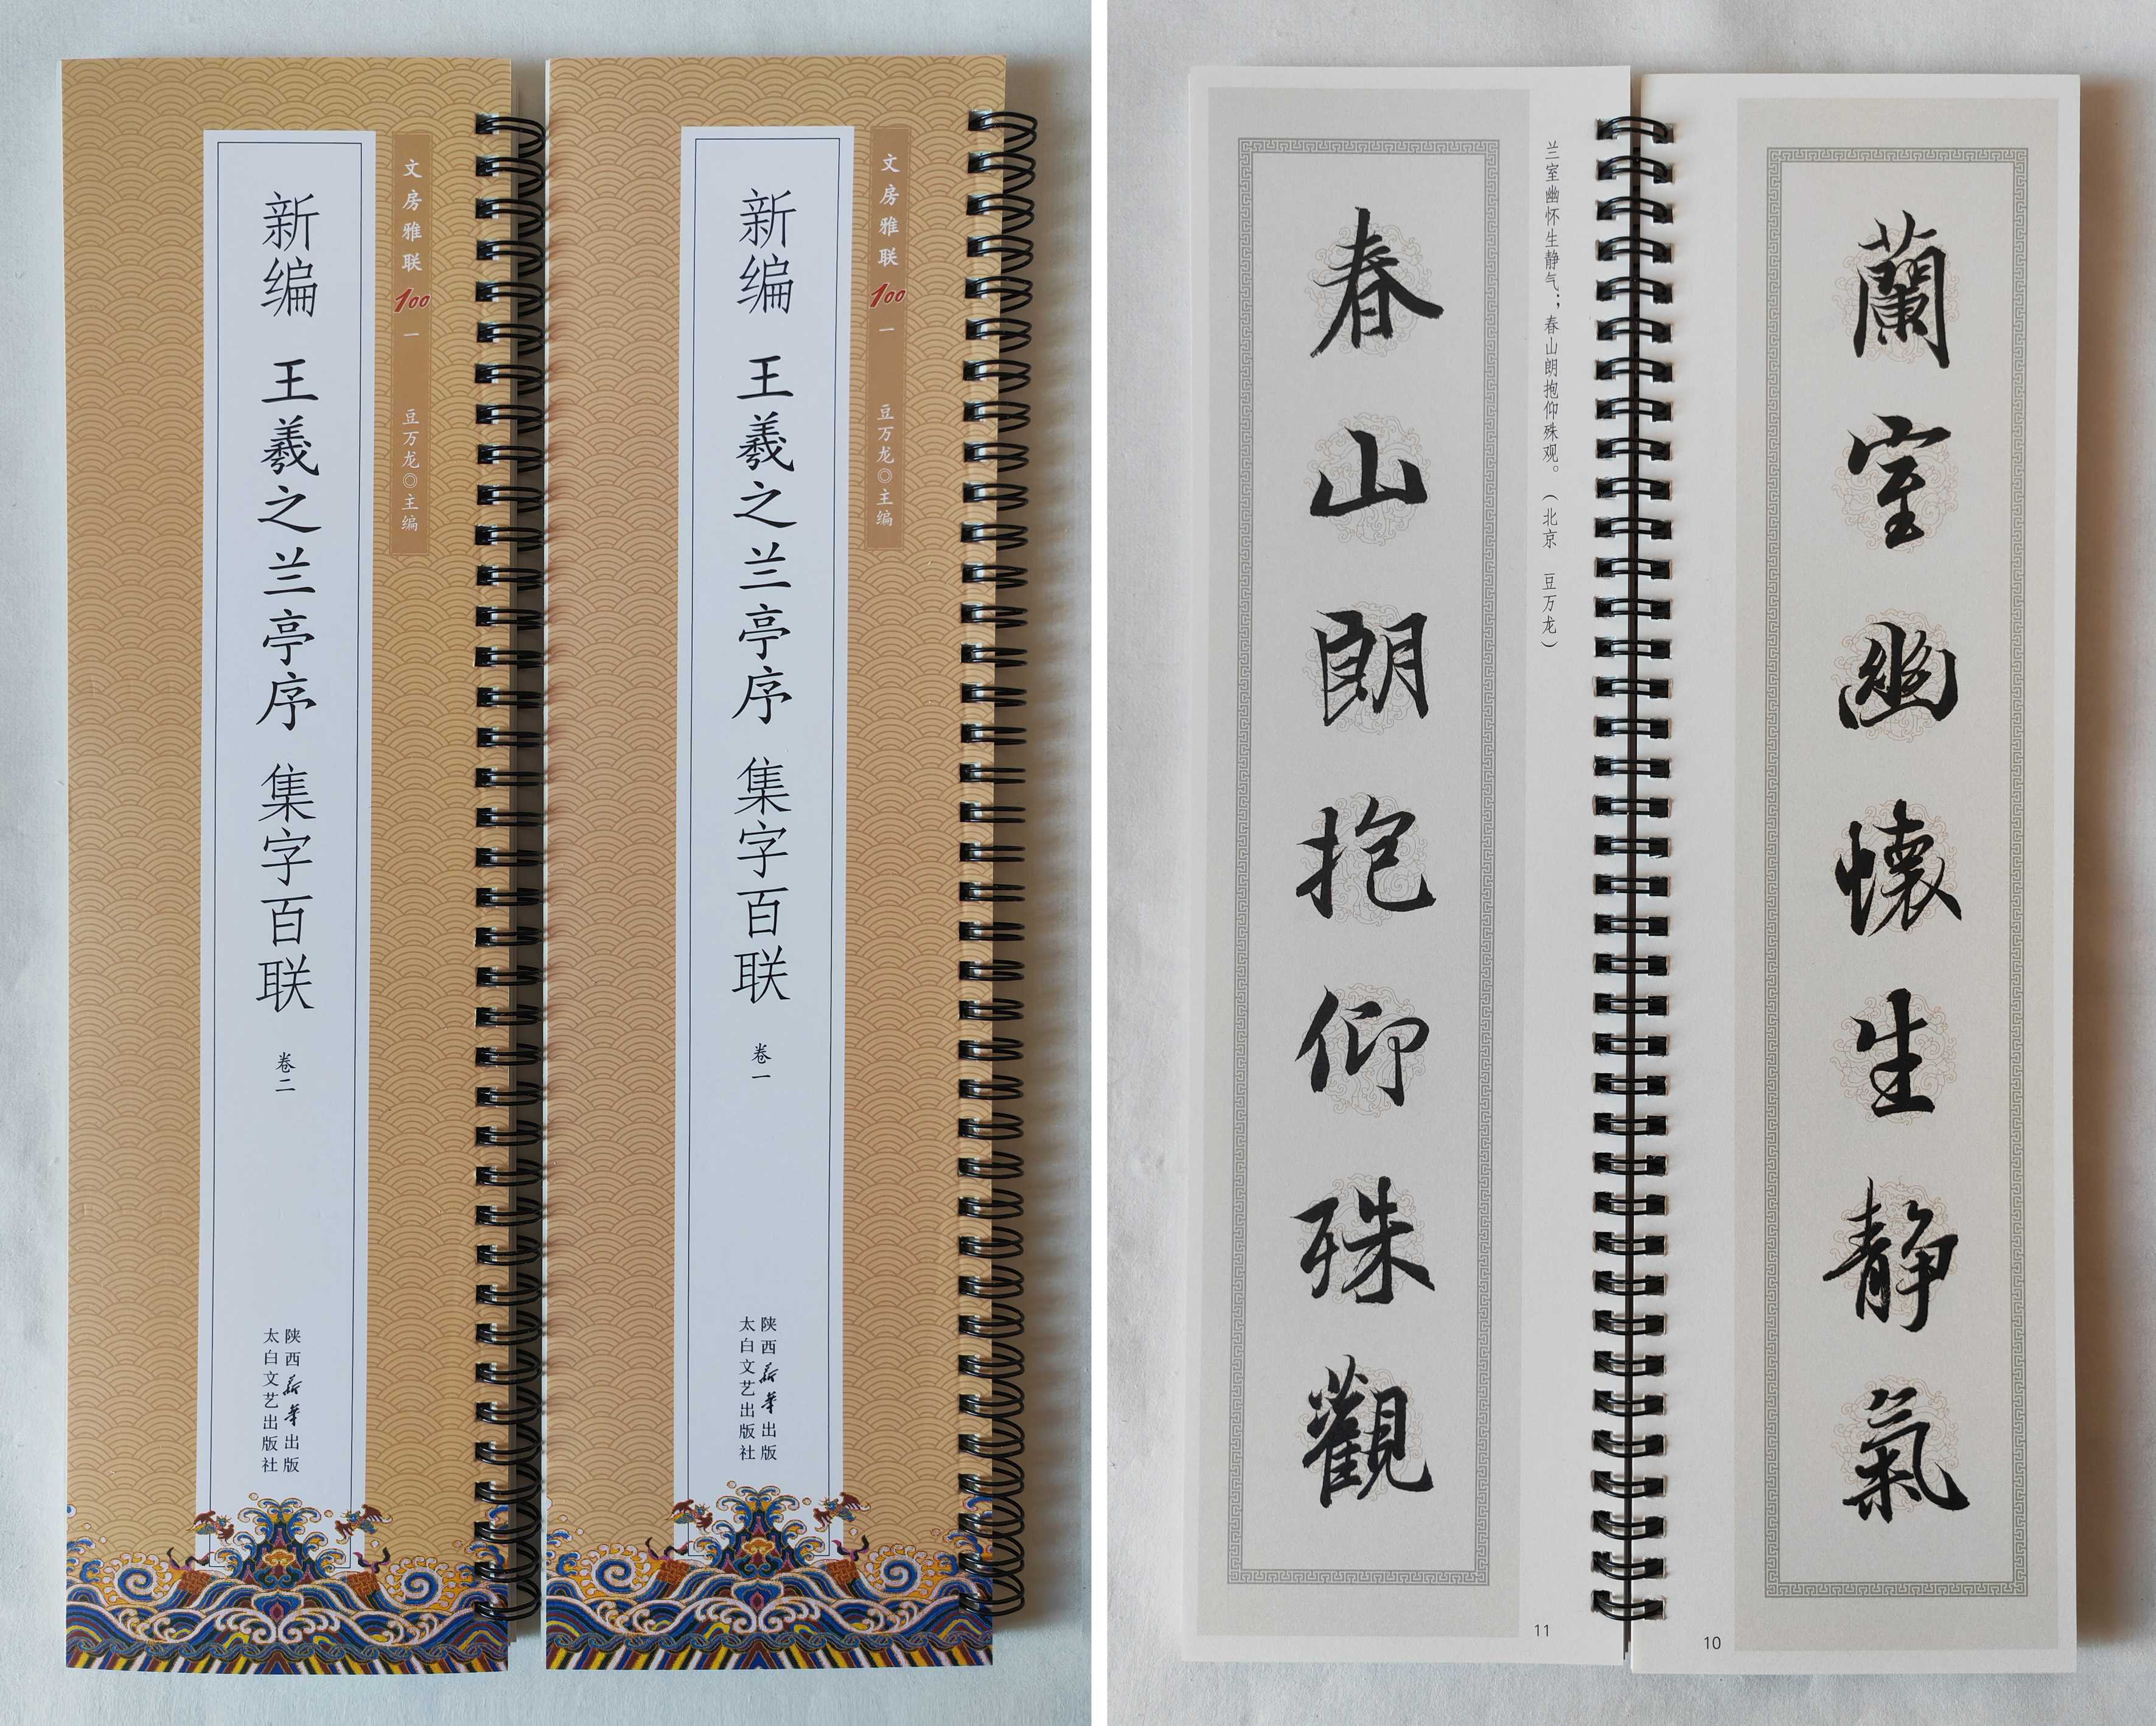 文房雅联100 一 豆万龙◎主编
新编 王羲之兰亭序 集字百联 卷二
陕西新华出版
太白文艺出版社
文房雅联100 一 豆万龙◎主编
新编 王羲之兰亭序 集字百联 卷一
陕西新华出版
太白文艺出版社
蘭室幽懷生静氣
10
兰室幽怀生静气；春山朗抱仰殊观。（北京 豆万龙）
春山朗抱仰殊觀
11